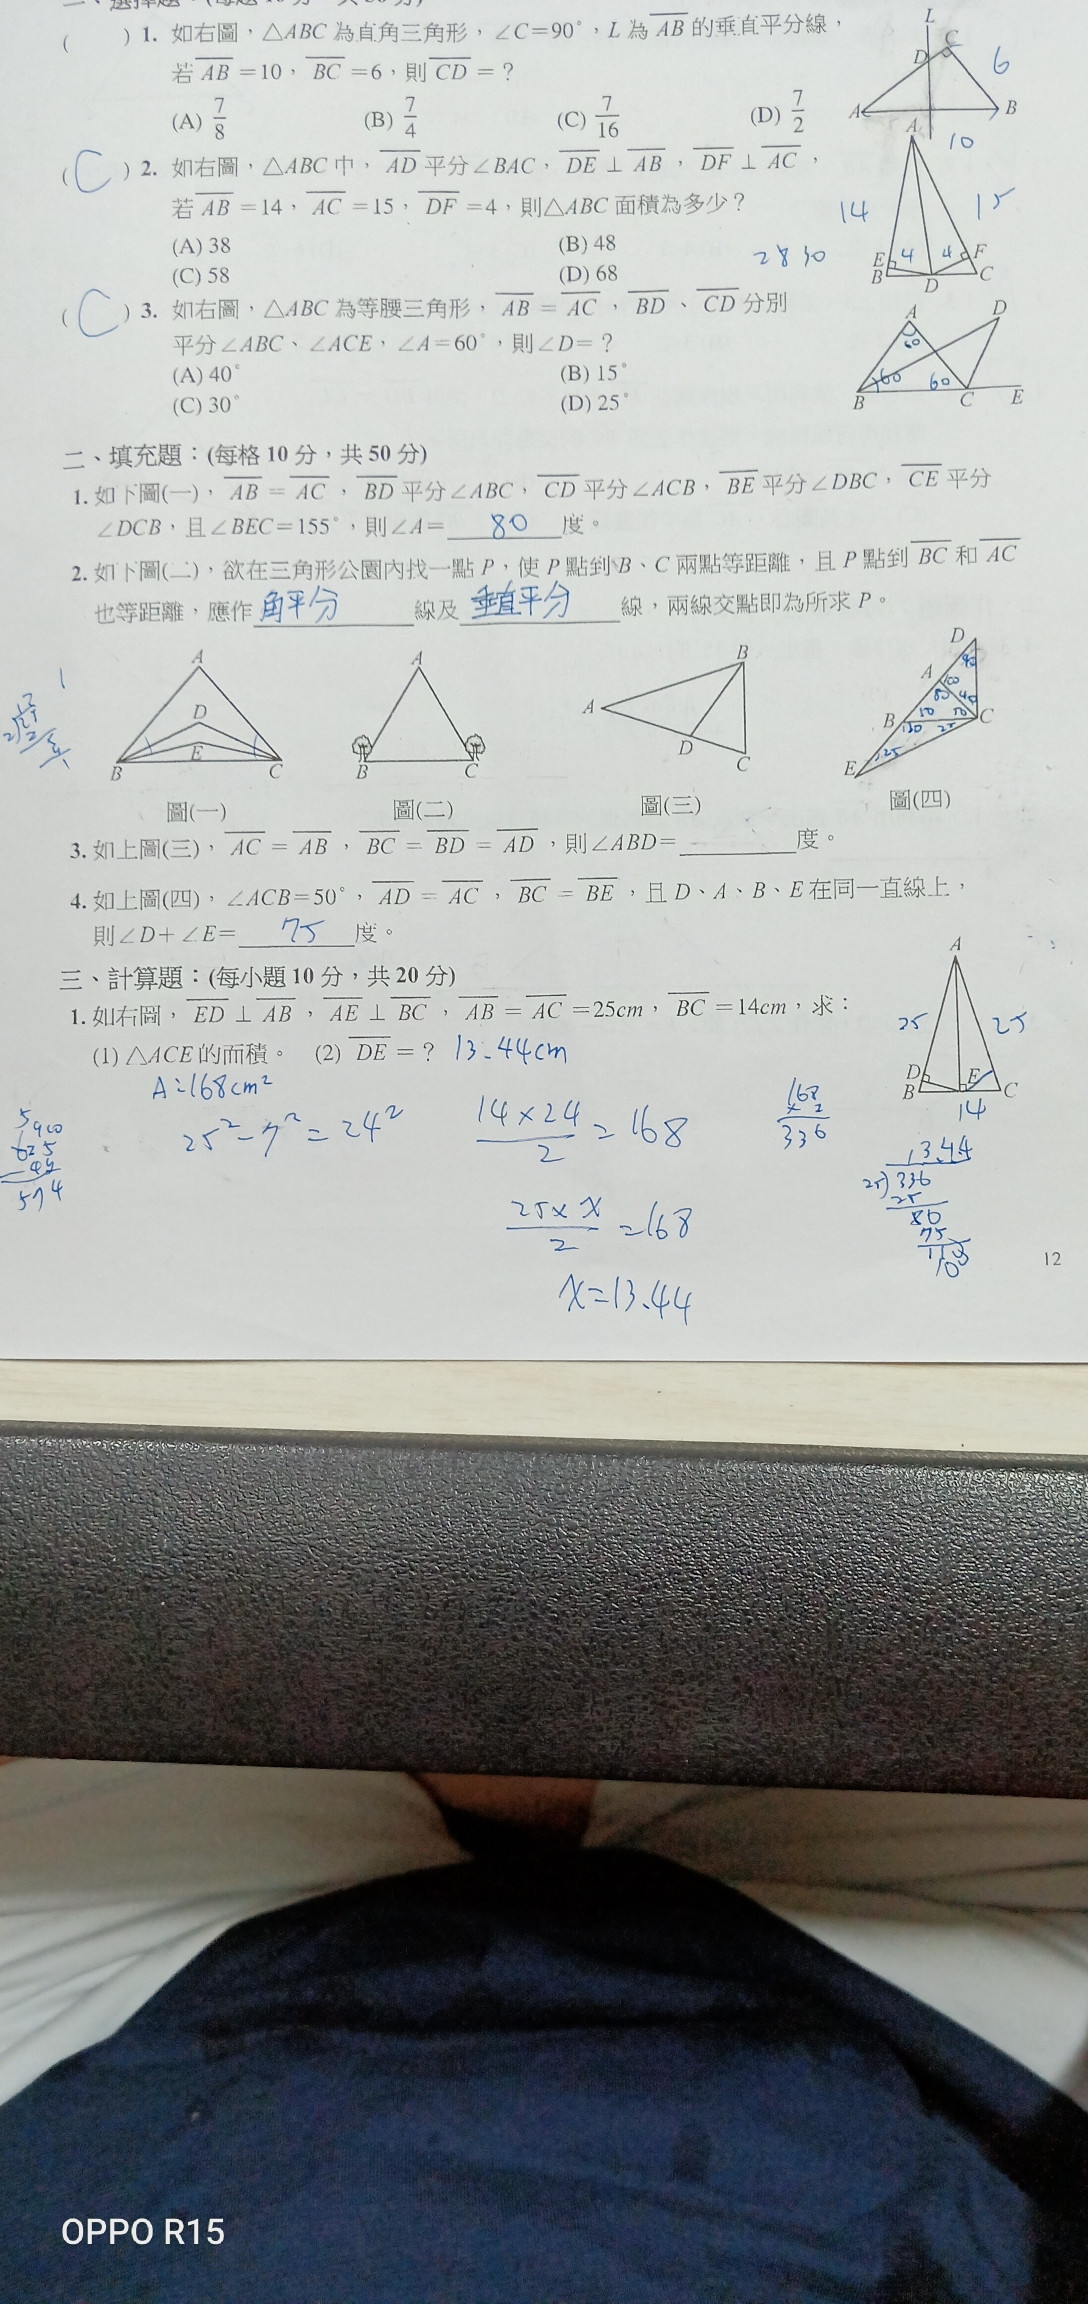 ( ) 1. 如右圖，△ABC 為直角三角形，∠C=90°，L 為 AB 的垂直平分線，
若 AB =10， BC =6，則 CD = ？
(A) 7/8 (B) 7/4 (C) 7/16 (D) 7/2
L
D
C
6
A
B
10
( C ) 2. 如右圖，△ABC 中， AD 平分∠BAC， DE ⊥ AB ， DF ⊥ AC ，
若 AB =14， AC =15， DF =4，則△ABC 面積為多少？
(A) 38 (B) 48
(C) 58 (D) 68
28 30
A
14
15
E 4 4 F
B D C
( C ) 3. 如右圖，△ABC 為等腰三角形， AB = AC ， BD 、 CD 分別
平分∠ABC、∠ACE，∠A=60°，則∠D=？
(A) 40° (B) 15°
(C) 30° (D) 25°
A D
60
60 60
B C E
二、填充題：(每格 10 分，共 50 分)
1. 如下圖(一)， AB = AC ， BD 平分∠ABC， CD 平分∠ACB， BE 平分∠DBC， CE 平分
∠DCB，且∠BEC=155°，則∠A= 80 度。
2. 如下圖(二)，欲在三角形公園內找一點 P，使 P 點到 B、C 兩點等距離，且 P 點到 BC 和 AC
也等距離，應作 角平分 線及 垂直平分 線，兩線交點即為所求 P。
A
D
E
B C
圖(一)
A
B C
圖(二)
B
A
D
C
圖(三)
D
A
B C
E
圖(四)
3. 如上圖(三)， AC = AB ， BC = BD = AD ，則∠ABD= 度。
4. 如上圖(四)，∠ACB=50°， AD = AC ， BC = BE ，且 D、A、B、E 在同一直線上，
則∠D+∠E= 75 度。
三、計算題：(每小題 10 分，共 20 分)
1. 如右圖， ED ⊥ AB ， AE ⊥ BC ， AB = AC =25cm， BC =14cm，求：
(1) △ACE 的面積。 (2) DE =？ 13.44cm
A=168cm²
A
25 25
D
E
B C
14
25²-7²=24²
14×24/2=168
168
×2
336
25×x/2=168
x=13.44
13.44
25)336
25
80
75
12
OPPO R15